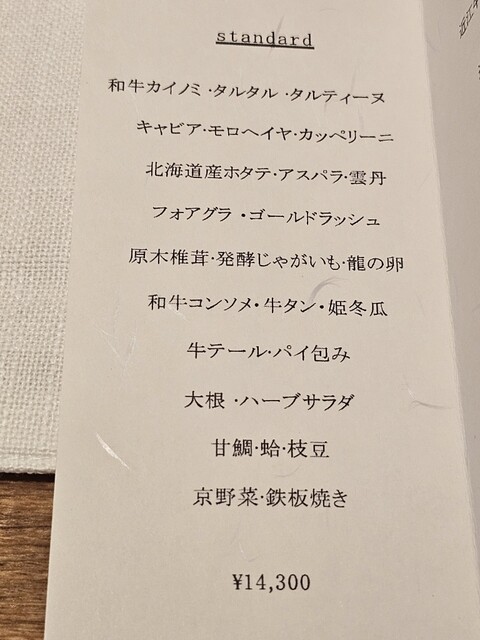 standard
和牛カイノミ・タルタル・タルティーヌ
キャビア・モロヘイヤ・カッペリーニ
北海道産ホタテ・アスパラ・雲丹
フォアグラ・ゴールドラッシュ
原木椎茸・発酵じゃがいも・龍の卵
和牛コンソメ・牛タン・姫冬瓜
牛テール・パイ包み
大根・ハーブサラダ
甘鯛・蛤・枝豆
京野菜・鉄板焼き
¥14,300
近江